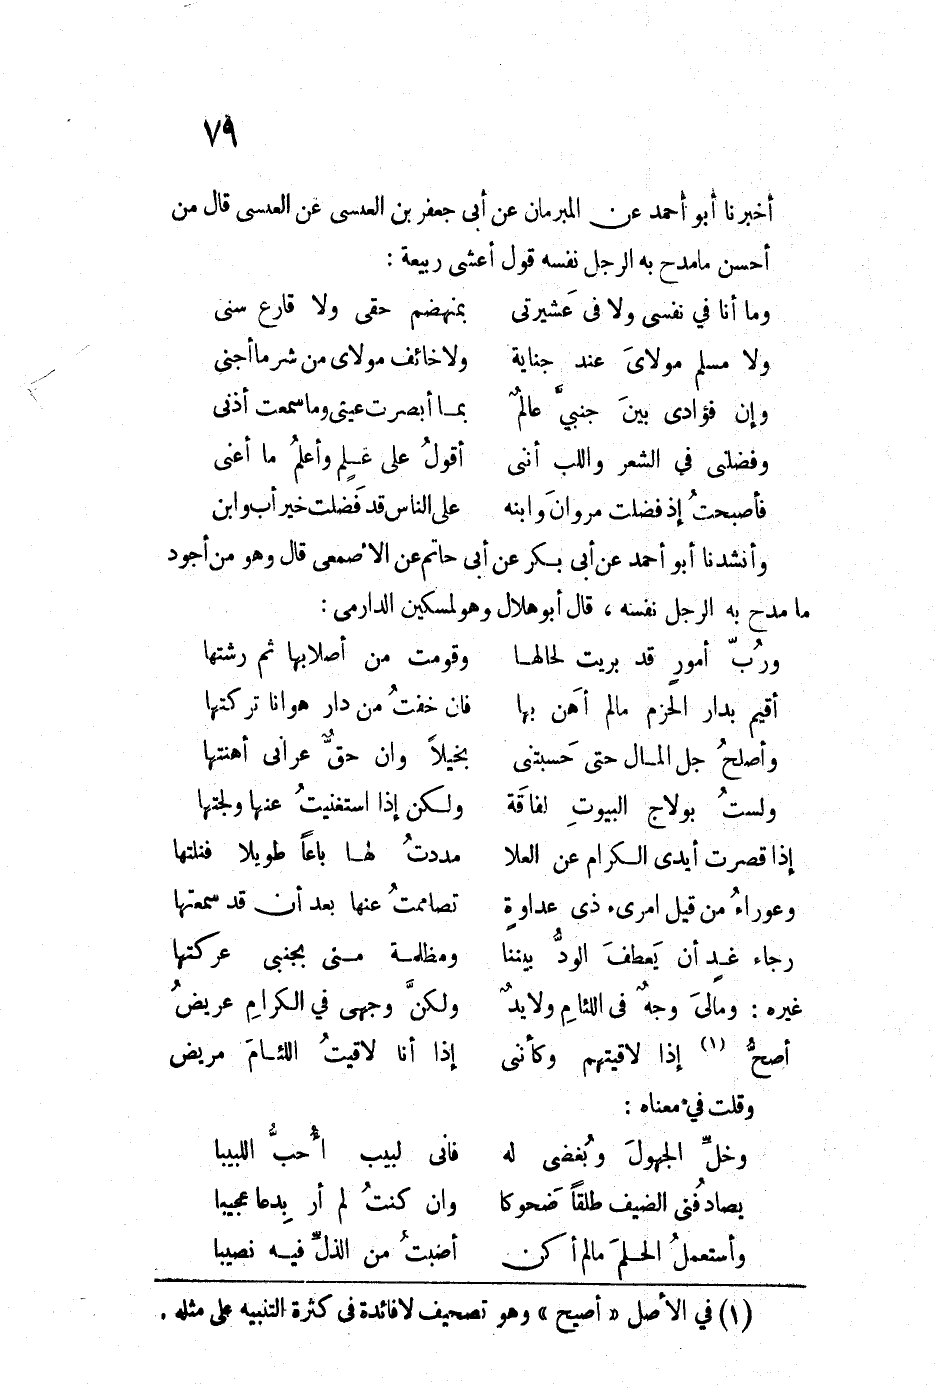 ٧٩
أخبرنا أبو أحمد عن المبرمان عن أبى جعفر بن العبسى عن العبسى قال من
أحسن مامدح به الرجل نفسه قول أعشى ربيعة :
وما أنا في نفسى ولا فى عَشيرتى بمنهضم حقى ولا قارع سنى
ولا مسلم مولاىَ عند جناية ولا خائف مولاى من شر ما أجنى
وإن فؤادى بينَ جنبيَّ عالمٌ بمـا أبصرت عينى وما سمعت أذنى
وفضلنى في الشعر واللب أننى أقولُ على عَـلمٍ وأعلمُ ما أعنى
فأصبحتُ إذ فضلت مروانَ وابنه على الناس قد فَضلت خير أب وابن
وأنشدنا أبو أحمد عن أبى بـكر عن أبى حاتم عن الاصمعى قال وهو من أجود
ما مدح به الرجل نفسه ، قال أبو هلال وهو لمسكين الدارمى :
ورُبّ أمورٍ قد بريت لحالهـا وقومت من أصلابها ثم رشتها
أقيم بدار الحزم مالم أهَن بها فان خفتُ من دار هوانا تركتها
وأصلحُ جل المـال حتى حَسبتنى بخيلاً وان حقٌّ عرانى أهنتها
ولستُ بولاج البيوتِ لفاقَة ولـكن إذا استغنيتُ عنها ولجتها
إذا قصرت أيدى الـكرام عن العلا مددتُ لهـا باعاً طويلا فنلتها
وعوراءُ من قيل امرىء ذى عداوةٍ تصاممتُ عنها بعد أن قد سمعتها
رجاء غـدٍ أن يَعطفَ الودُّ بيننا ومظلمـة مـنى بجنبى عركتها
غيره : ومالىَ وجهٌ فى اللئامِ ولا يدٌ ولكنَّ وجهى في الكرامِ عريضُ
أصحُّ (١) إذا لاقيتهم وكأننى إذا أنا لاقيتُ اللئـامَ مريض
وقلت في معناه :
وخلِّ الجهولَ وبُغضى له فانى لبيب أُحبُّ اللبيبا
يصادفُنى الضيف طلقاً ضَحوكا وان كنتُ لم أر بِدعا عجيبا
وأستعملُ الحـلمَ مالم أكن أضبتُ من الذلِّ فيـه نصيبا
(١) في الأصل « أصبح » وهو تصحيف لا فائدة فى كثرة التنبيه على مثله .